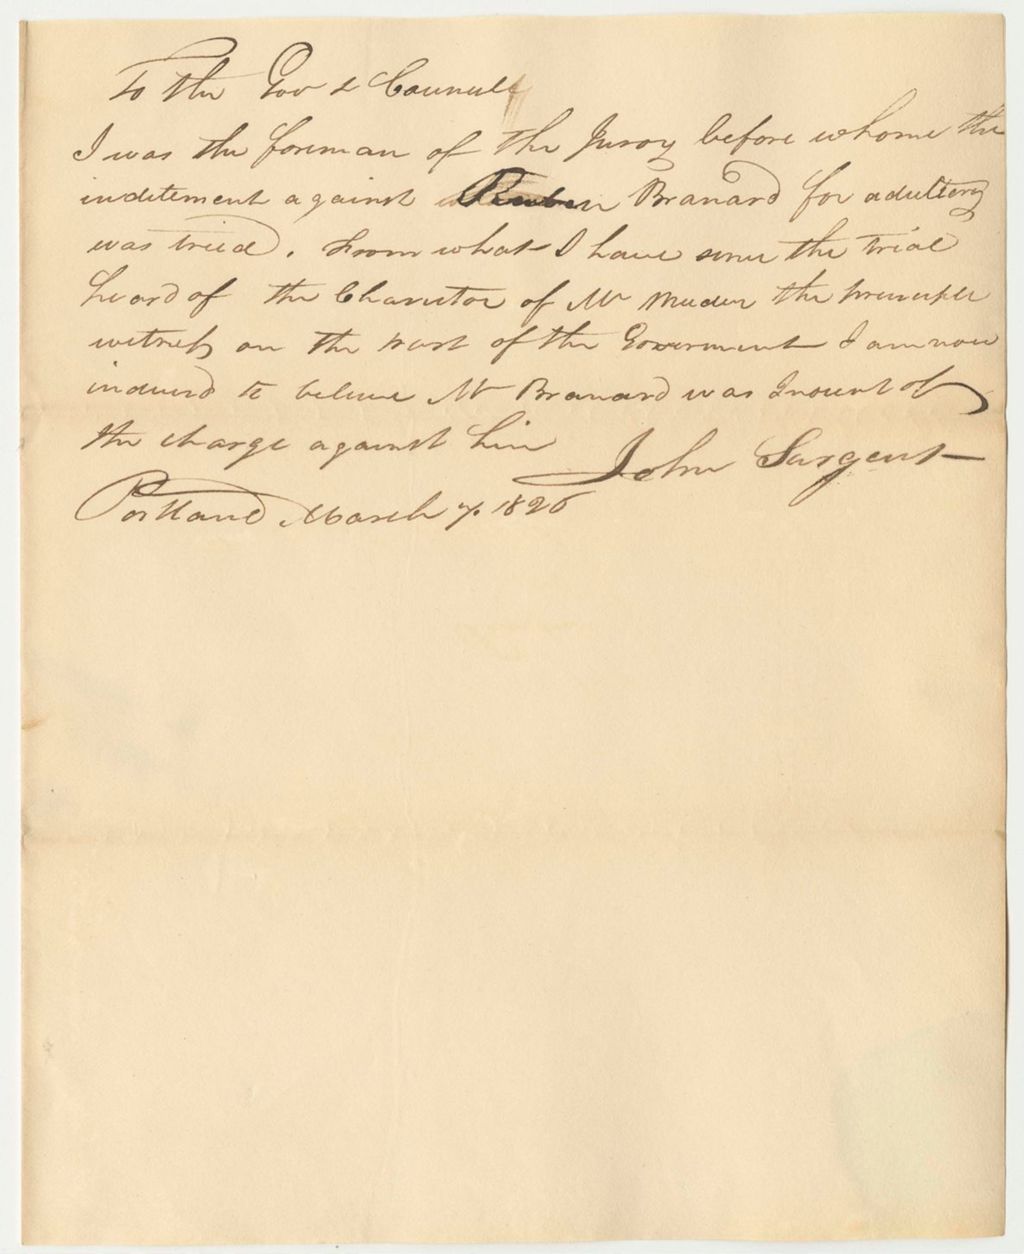 To the Gov & Councill
I was the foreman of the Juroy before whome the
inditement against Reuben Branard for adultery
was tried. From what I have since the trial
heard of the Charictor of Mr the principle
witness on the part of the Goverment I am now
induced to believe Mr Branard was Inocent of
the charge against him
John Sargent
Portland March 7. 1826